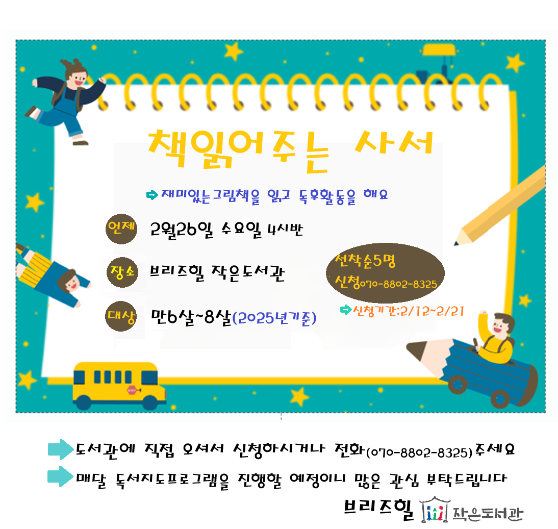 책읽어주는 사서
⇨ 재미있는그림책을 읽고 독후활동을 해요
언제 2월26일 수요일 4시반
장소 브리즈힐 작은도서관
대상 만6살~8살(2025년기준)
선착순5명
신청070-8802-8325
⇨신청기간:2/12~2/21
도서관에 직접 오셔서 신청하시거나 전화(070-8802-8325)주세요
매달 독서지도프로그램을 진행할 예정이니 많은 관심 부탁드립니다
브리즈힐 작은도서관